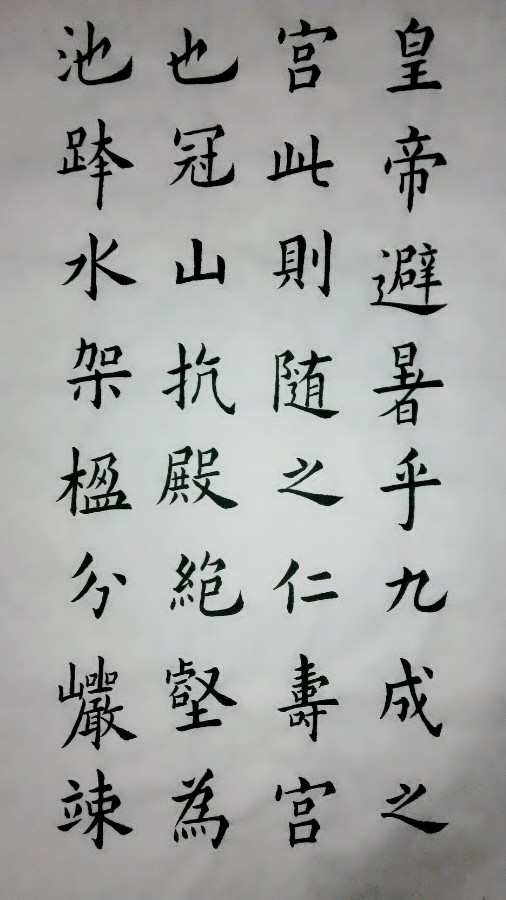 皇帝避暑乎九成之
宮此則随之仁壽宮
也冠山抗殿絶壑為
池跨水架楹分巖竦